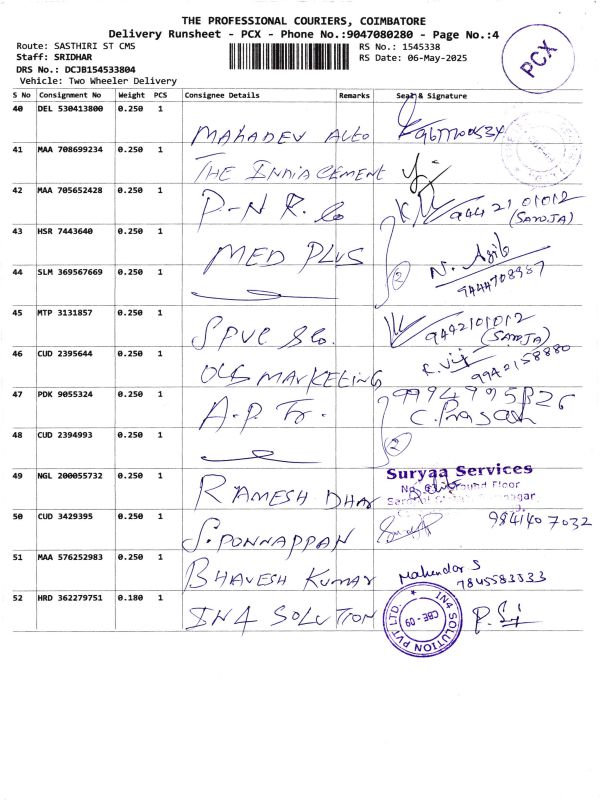 THE PROFESSIONAL COURIERS, COIMBATORE
Delivery Runsheet - PCX - Phone No.:9047080280 - Page No.:4
Route: SASTHIRI ST CMS
RS No.: 1545338
Staff: SRIDHAR
RS Date: 06-May-2025
DRS No.: DCJB154533804
Vehicle: Two Wheeler Delivery
PCX
S No Consignment No Weight PCS Consignee Details Remarks Seal & Signature
40 DEL 530413800 0.250 1 MAHADEV AUTO
41 MAA 708699234 0.250 1 THE INDIA CEMENT
42 MAA 705652428 0.250 1 P-N R. Co 9442101012
(SAROJA)
43 HSR 7443640 0.250 1 MED PLUS N. Agib
44 SLM 369567669 0.250 1 2 9444708987
45 MTP 3131857 0.250 1 SPVC &Co. 9442101012
(SAROJA)
46 CUD 2395644 0.250 1 OLG MARKETING R. Viji 9942158880
47 PDK 9055324 0.250 1 A.P. Tr. 9994995826
C. Prasath
48 CUD 2394993 0.250 1 2
49 NGL 200055732 0.250 1 RAMESH DHAR Suryaa Services
Ground Floor
50 CUD 3429395 0.250 1 S. PONNAPPAN 9841407032
51 MAA 576252983 0.250 1 BHAVESH KUMAR Mahendar S
7845583333
52 HRD 362279751 0.180 1 IN4 SOLUTION IN4 SOLUTION PVT LTD. CBE - 09